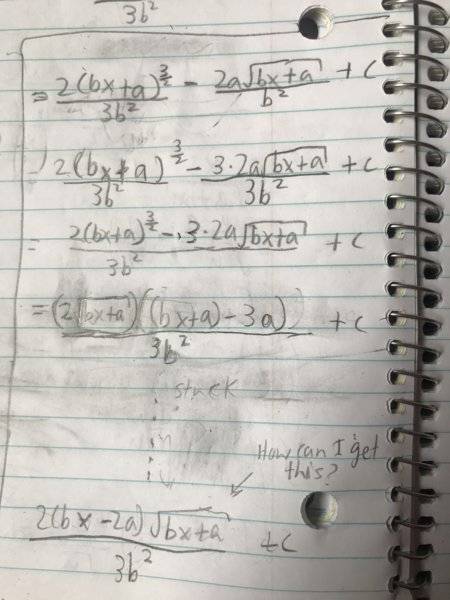 3b²
= 2(bx+a)^(3/2) / 3b² - 2a√(bx+a) / b² + C
2(bx+a)^(3/2) / 3b² - 3·2a√(bx+a) / 3b² + C
= 2(bx+a)^(3/2) - 3·2a√(bx+a) / 3b² + C
= (2√(bx+a))((bx+a)-3a) / 3b² + C
stuck
How can I get
this?
2(bx-2a)√(bx+a) / 3b² + C